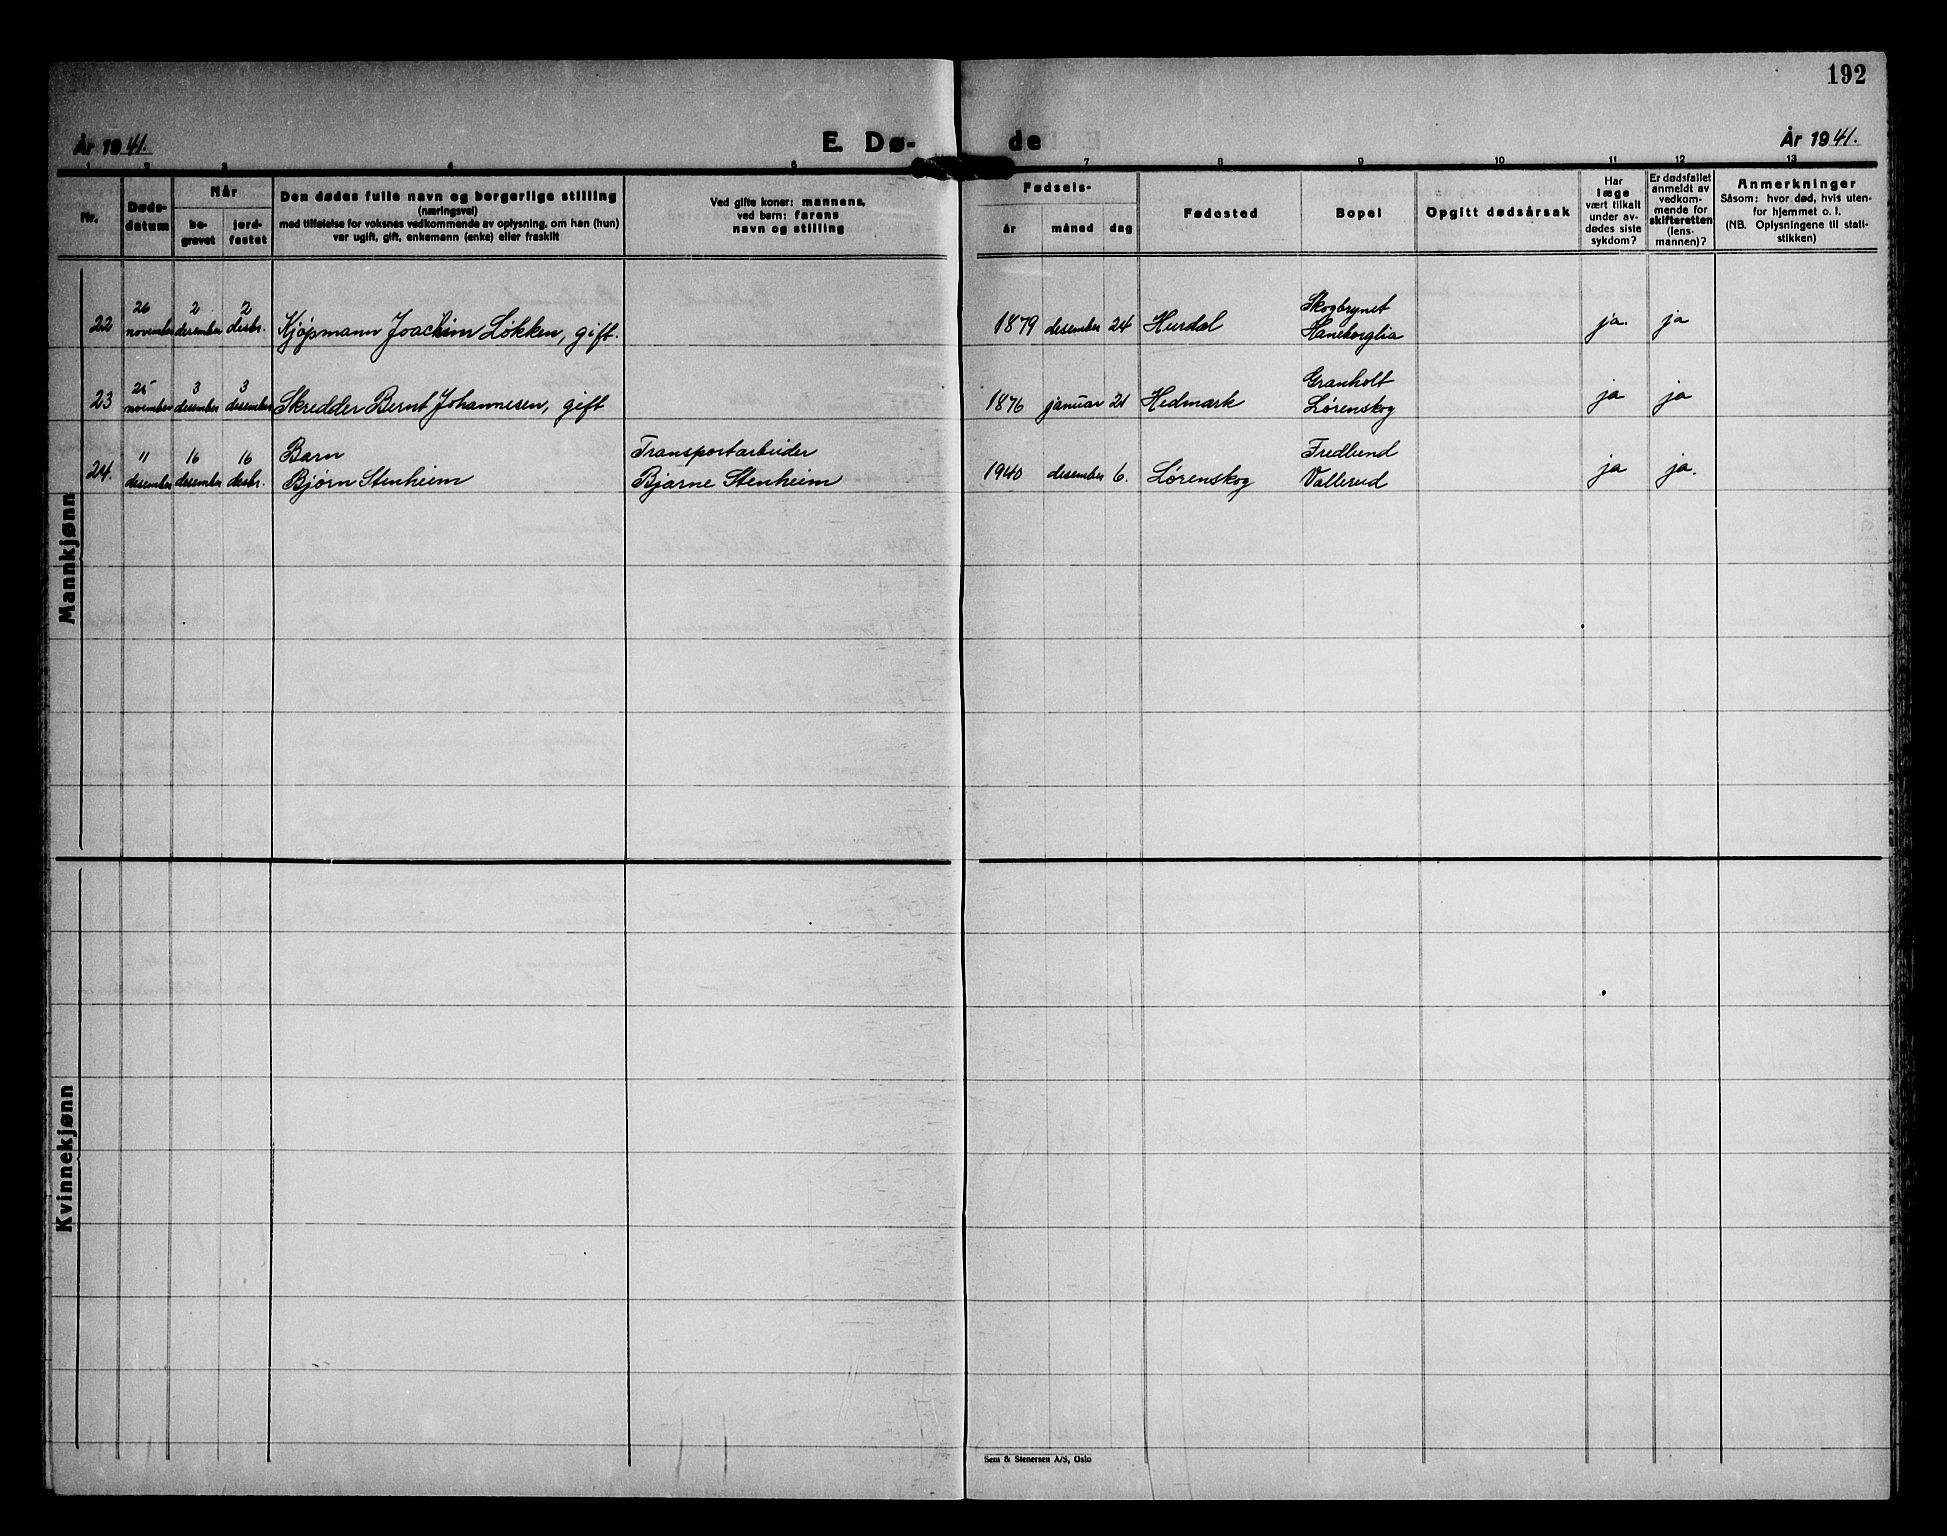 192
År 1941.
E. Dø-
de
År 1941.
1 2 3 4 5 7 8 9 10 11 12 13
Nr.
Døds-
datum
Når
be-
gravet
jord-
festet
Den dødes fulle navn og borgerlige stilling
(næringsvei)
med tilføielse for voksnes vedkommende av oplysning, om han (hun)
var ugift, gift, enkemann (enke) eller fraskilt
Ved gifte koner: mannens,
ved barn: farens
navn og stilling
Fødsels-
år måned dag
Fødested
Bopel
Opgitt dødsårsak
Har
læge
vært tilkalt
under av-
dødes siste
sykdom?
Er dødsfallet
anmeldt av
vedkom-
mende for
skifteretten
(lens-
mannen)?
Anmerkninger
Såsom: hvor død, hvis uten-
for hjemmet o. l.
(NB. Oplysningene til stati-
stikken)
Mannkjønn
26 2 2 Skogbrynet
22 november desember desbr. Kjøpmann Joachim Løkken, gift. 1879 desember 24 Hurdal Haneborglia ja. ja
25 3 3 Granholt
23 november desember desember Skredder Bernt Johannesen, gift 1876 januar 21 Hedmark Lørenskog ja ja
11 16 16 Barn Transportarbeider Fredlund
24. desember desember desbr. Bjørn Stenheim Bjarne Stenheim 1940 desember 6. Lørenskog Vallerud ja ja.
Kvinnekjønn
Sem & Stenersen A/S, Oslo